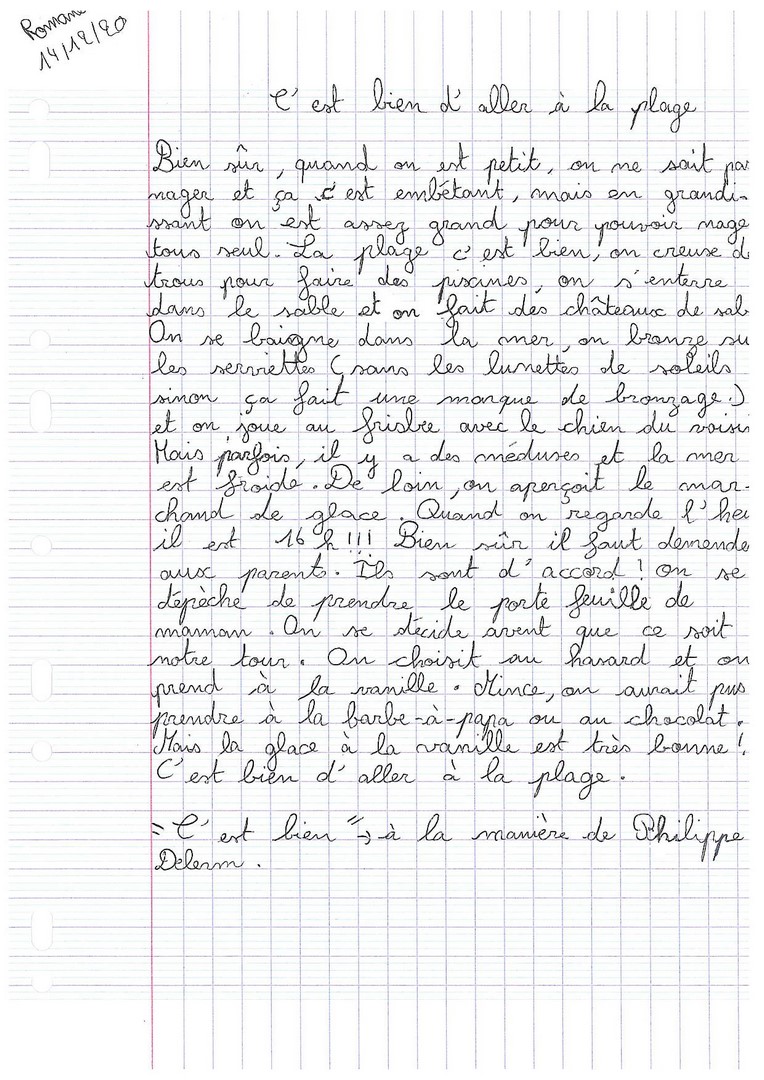 Romane
14/12/20
C'est bien d'aller à la plage
Bien sûr, quand on est petit, on ne sait pas
nager et ça c'est embêtant, mais en grandi-
ssant on est assez grand pour pouvoir nage
tous seul. La plage c'est bien, on creuse d
trous pour faire des piscines, on s'enterre
dans le sable et on fait des châteaux de sab
On se baigne dans la mer, on bronze su
les serviettes (sans les lunettes de soleils
sinon ça fait une marque de bronzage.)
et on joue au frisbee avec le chien du voisin
Mais parfois, il y a des méduses et la mer
est froide. De loin, on aperçoit le mar-
chand de glace. Quand on regarde l'heu
il est 16 h!!! Bien sûr il faut demende
aux parents. Ils sont d'accord! on se
dépèche de prendre le porte feuille de
maman. On se décide avent que ce soit
notre tour. On choisit au hasard et on
prend à la vanille. Mince, on aurait pus
prendre à la barbe-à-papa ou au chocolat.
Mais la glace à la vanille est très bonne!
C'est bien d'aller à la plage.
"C'est bien" → à la manière de Philippe
Delerm.